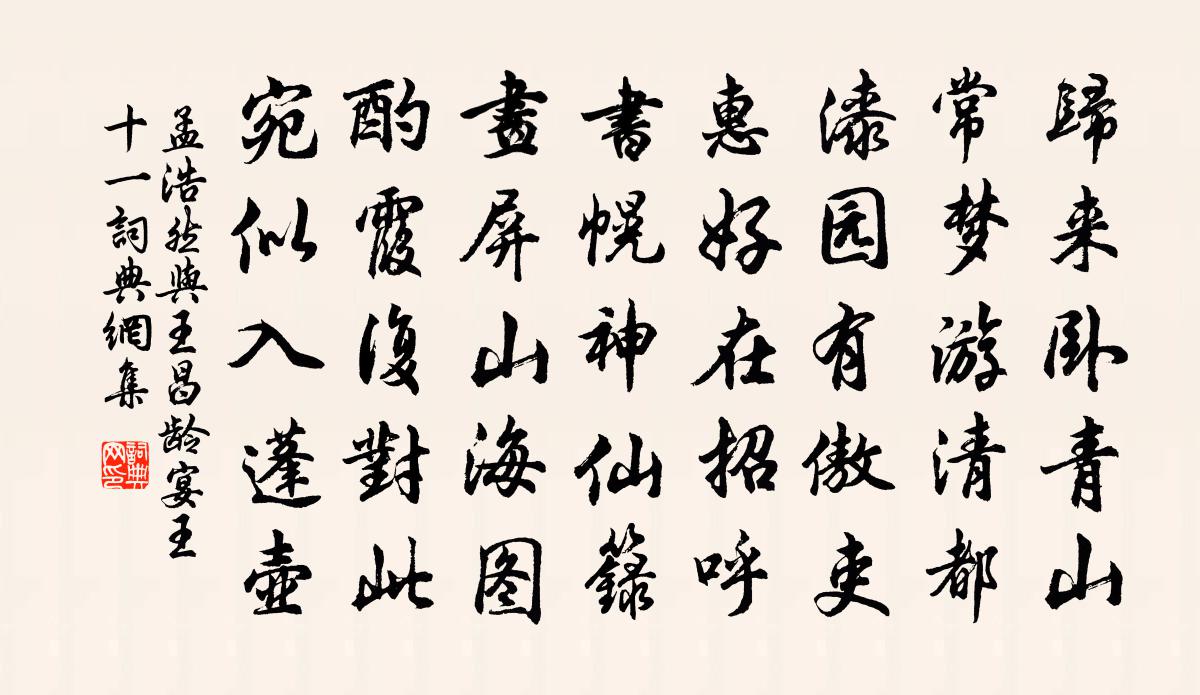 歸来卧青山
常梦游清都
漆园有傲吏
惠好在招呼
書幌神仙籙
畫屏山海图
酌霞復對此
宛似入蓬壺
孟浩然與王昌龄宴王
十一詞典網集
詞典網印